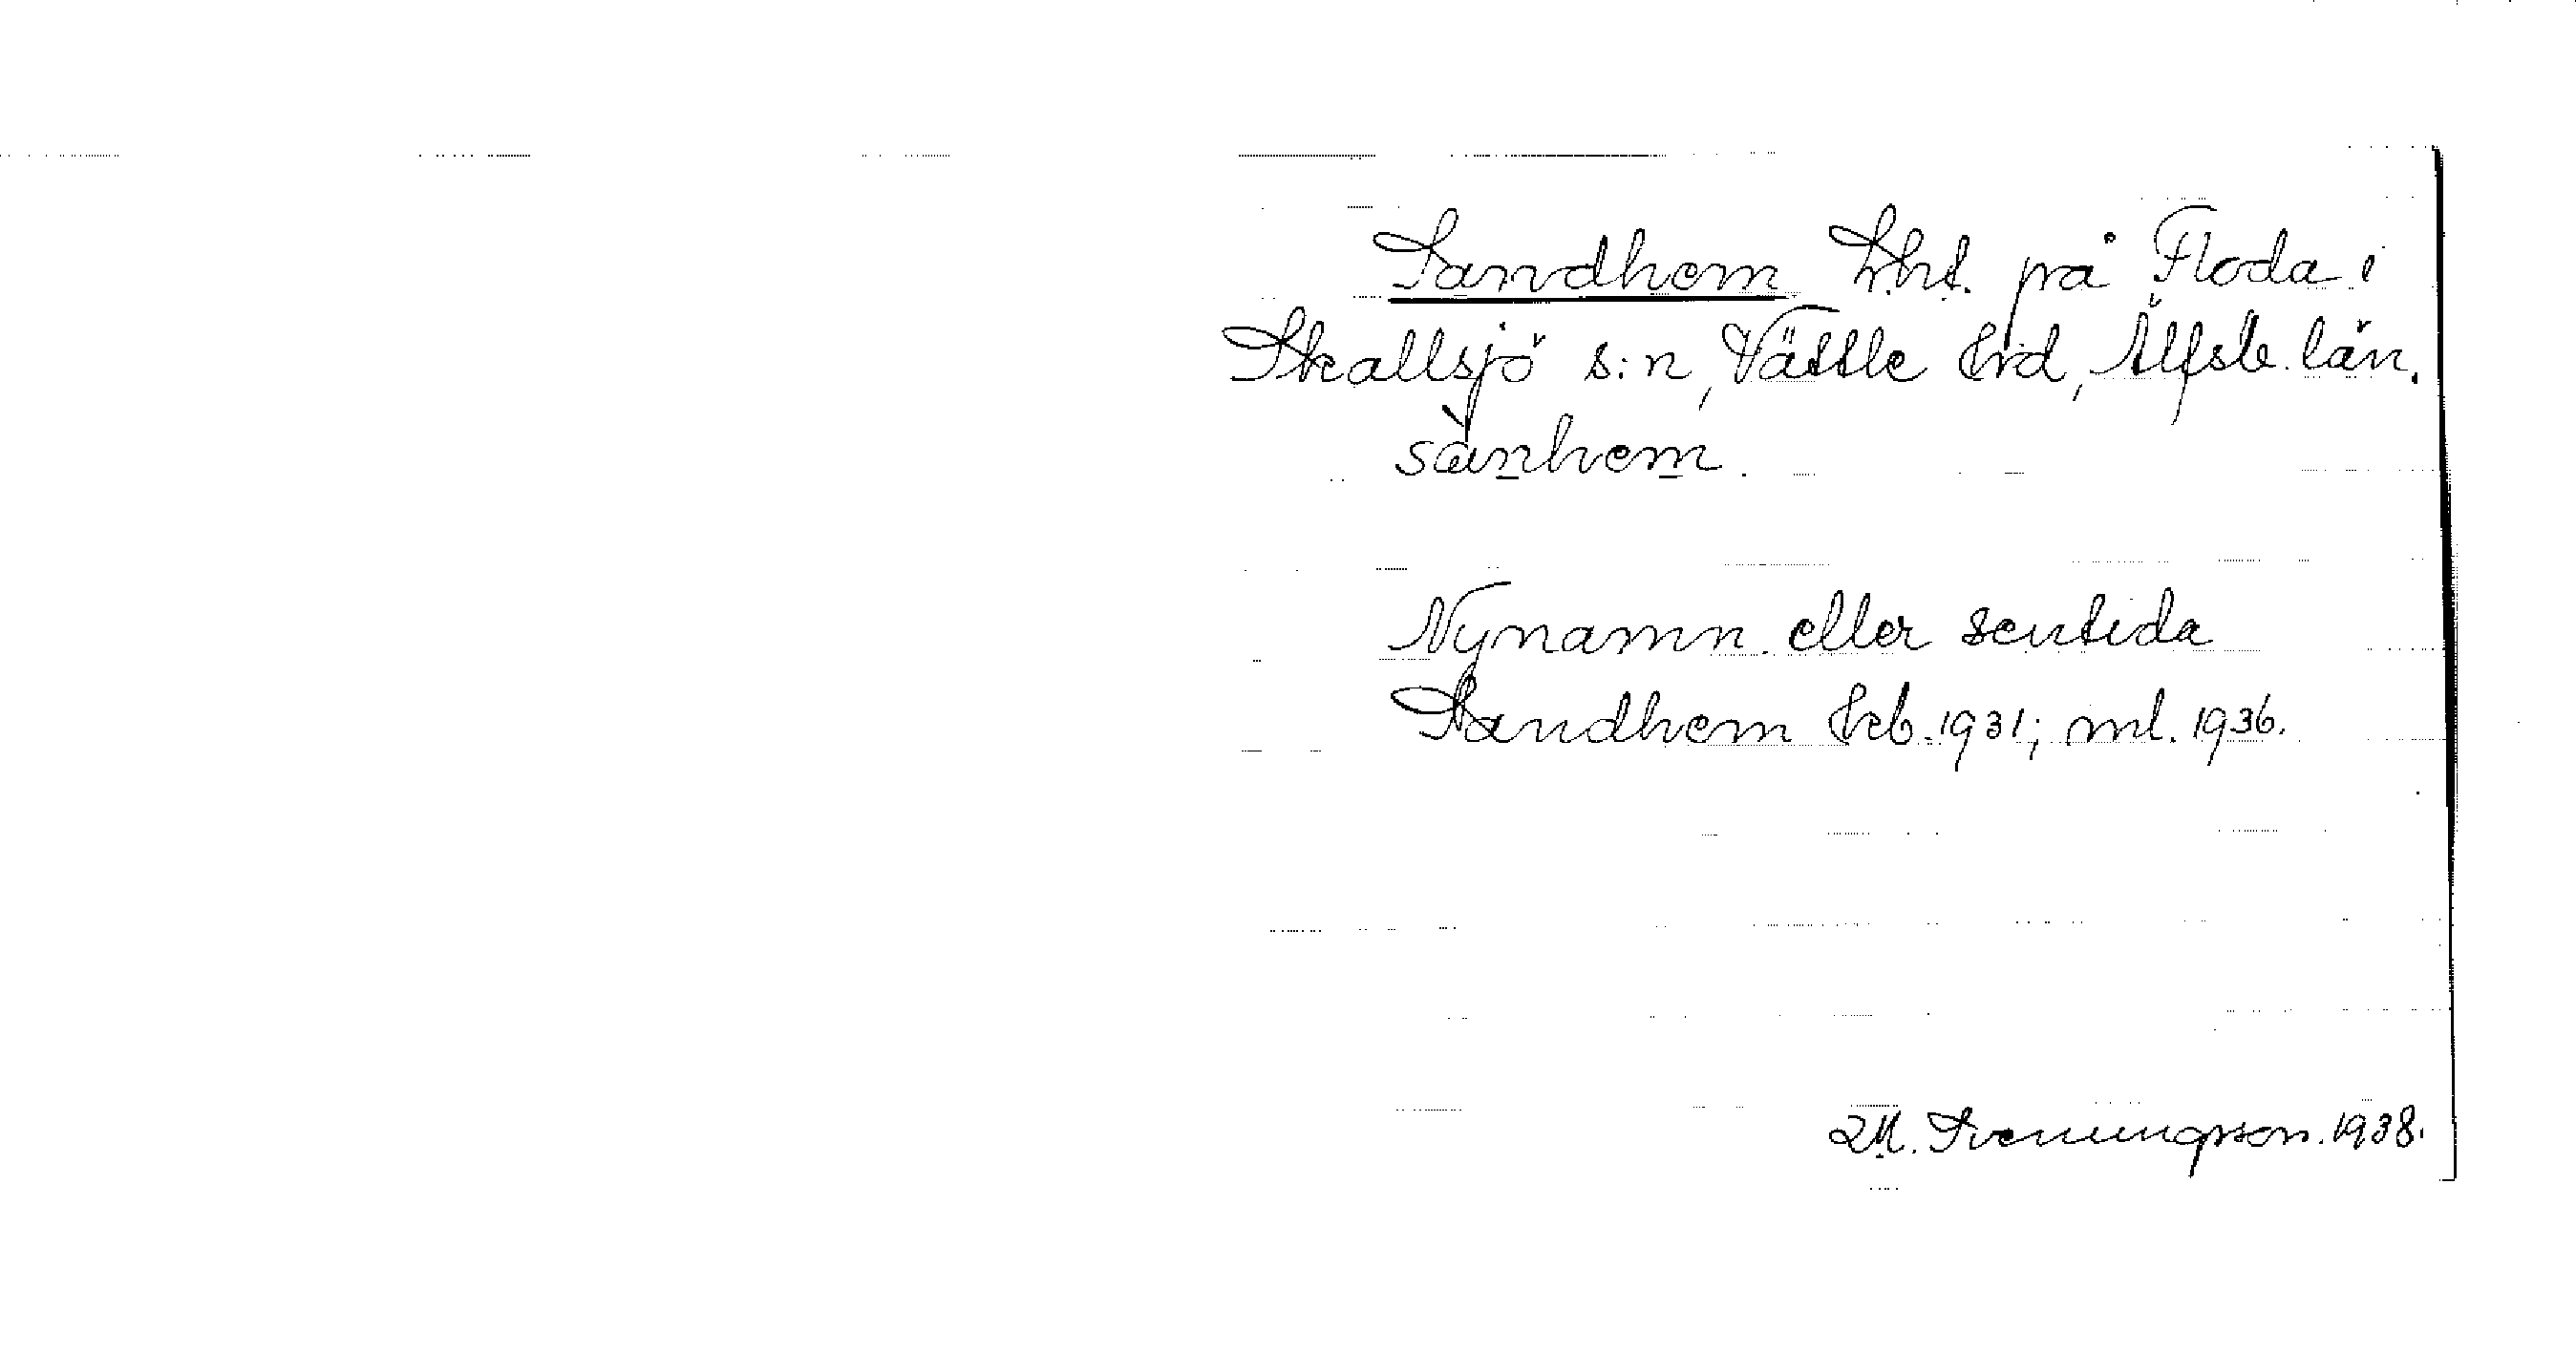 Sandhem lht. på Floda i
Skallsjö s:n, Vättle hrd, Älfsb. län.
sànhem.
Nynamn eller sentida
Sandhem hrb. 1931; ml. 1936.
M. Svenungsson. 1938.